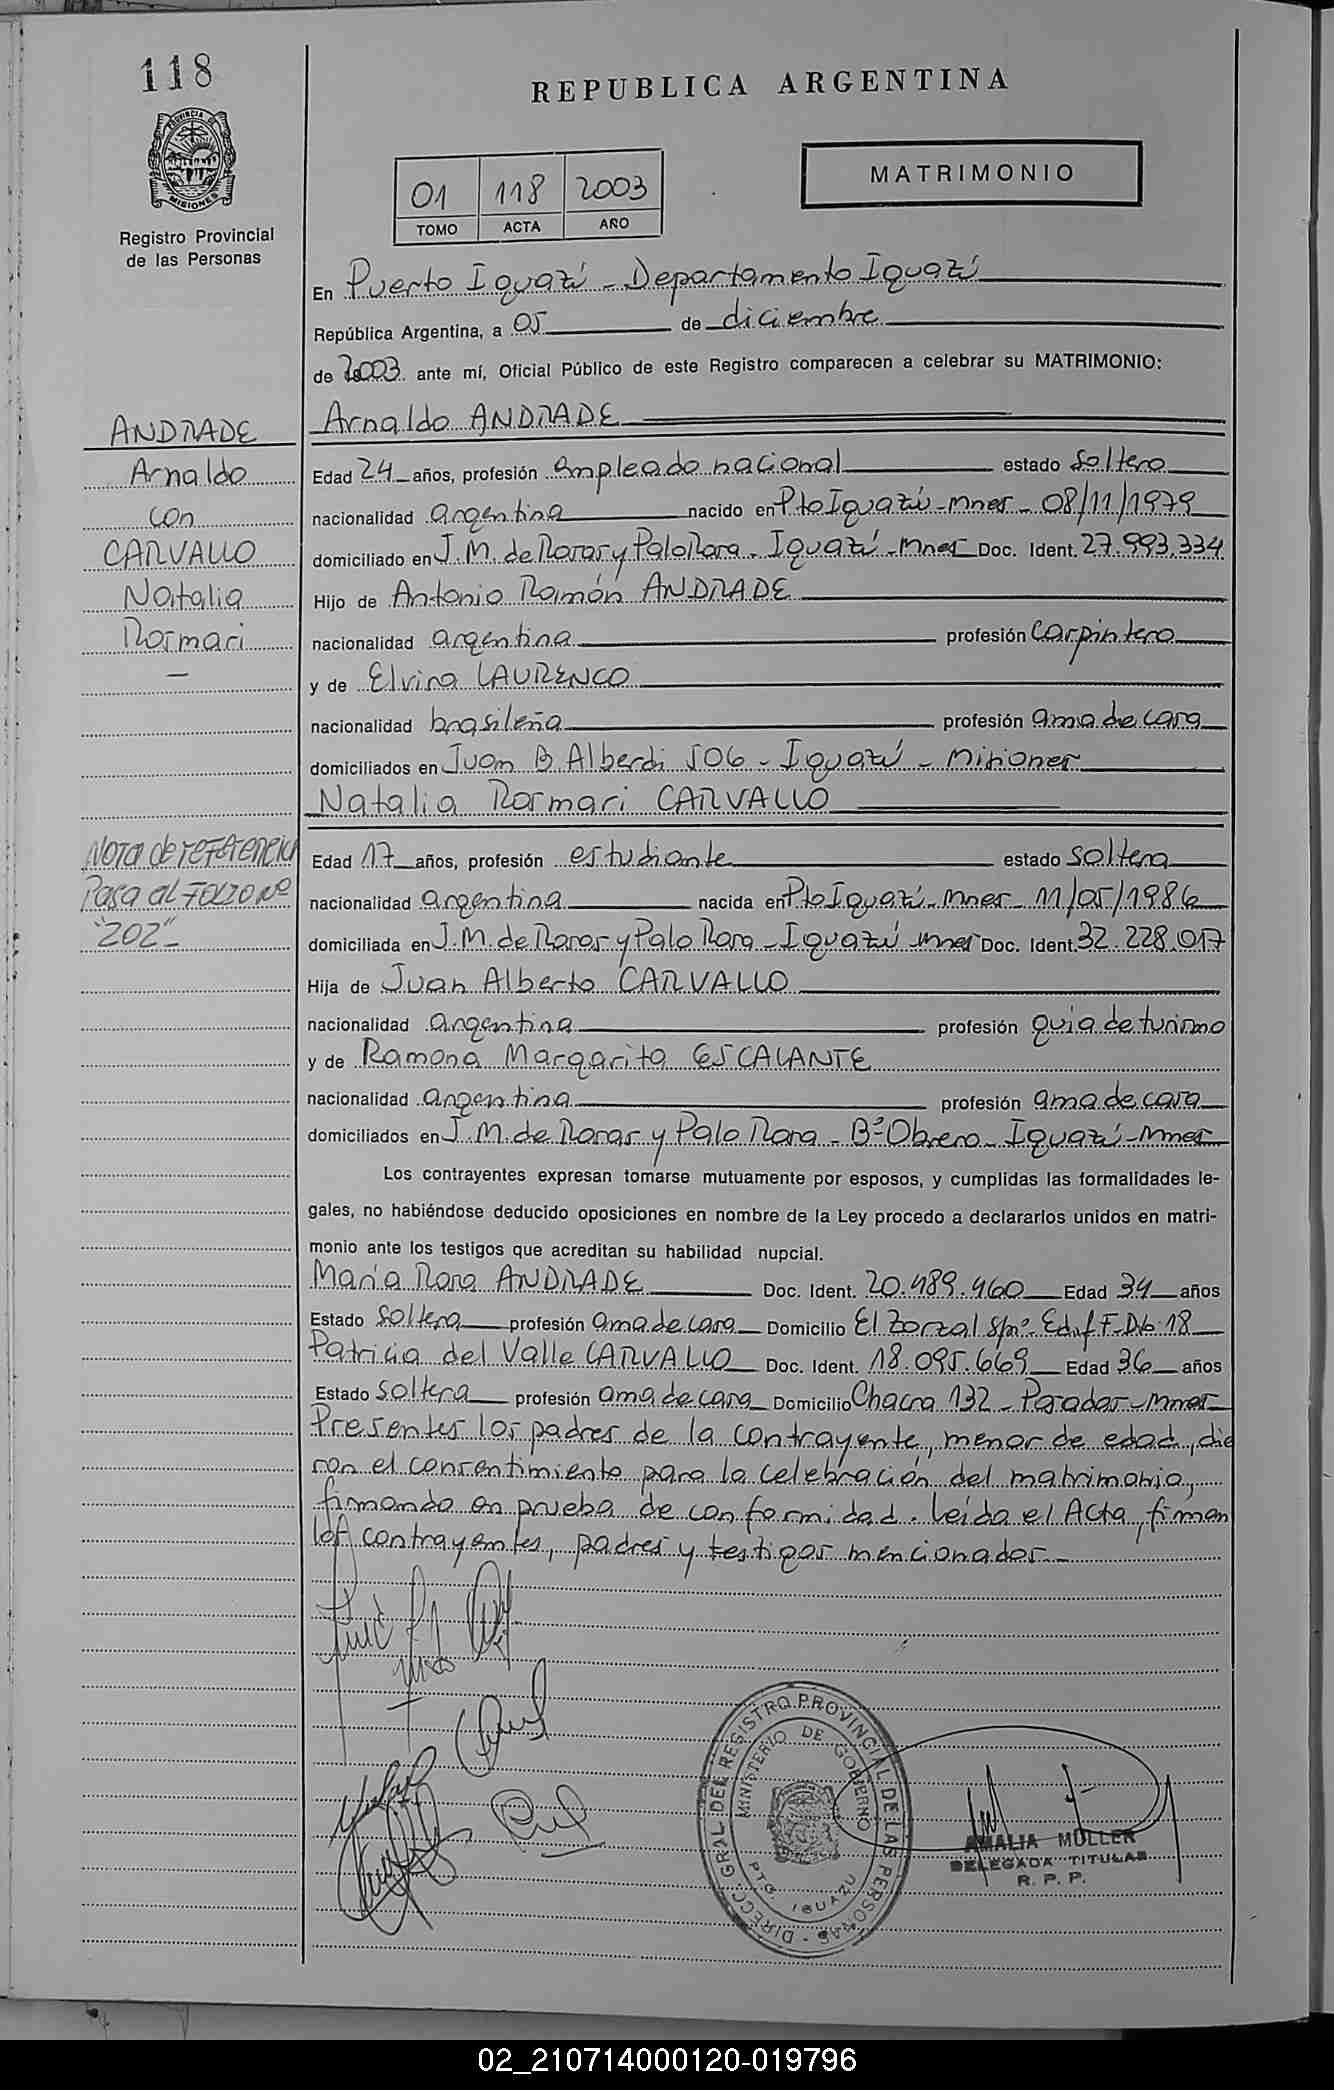 118
PROVINCIA DE
MISIONES
Registro Provincial
de las Personas
REPUBLICA ARGENTINA
MATRIMONIO
01 118 2003
TOMO ACTA AÑO
En Puerto Iguazú - Departamento Iguazú
República Argentina, a 05 de diciembre
de 2003 ante mí, Oficial Público de este Registro comparecen a celebrar su MATRIMONIO:
Arnaldo ANDRADE
Edad 24 años, profesión empleado nacional estado soltero
nacionalidad argentina nacido en Pto Iguazú - Mnes - 08/11/1979
domiciliado en J. M. de Rosas y Palo Rosa - Iguazú - Mnes Doc. Ident. 27.993.334
Hijo de Antonio Ramón ANDRADE
nacionalidad argentina profesión carpintero
y de Elvira LAURENCO
nacionalidad brasileña profesión ama de casa
domiciliados en Juan B Alberdi 506 - Iguazú - Misiones
Natalia Rosmari CARVALLO
Edad 17 años, profesión estudiante estado soltera
nacionalidad argentina nacida en Pto Iguazú - Mnes - 11/05/1986
domiciliada en J. M. de Rosas y Palo Rosa - Iguazú Mnes Doc. Ident. 32.228.017
Hija de Juan Alberto CARVALLO
nacionalidad argentina profesión guia de turismo
y de Ramona Margarita ESCALANTE
nacionalidad argentina profesión ama de casa
domiciliados en J. M. de Rosas y Palo Rosa - Bº Obrero - Iguazú - Mnes
Los contrayentes expresan tomarse mutuamente por esposos, y cumplidas las formalidades le-
gales, no habiéndose deducido oposiciones en nombre de la Ley procedo a declararlos unidos en matri-
monio ante los testigos que acreditan su habilidad nupcial.
María Rosa ANDRADE Doc. Ident. 20.489.460 Edad 34 años
Estado soltera profesión ama de casa Domicilio El Zorzal s/nº - Edif F - Dto 18
Patricia del Valle CARVALLO Doc. Ident. 18.095.669 Edad 36 años
Estado soltera profesión ama de casa Domicilio Chacra 132 - Posadas - Mnes
Presentes los padres de la contrayente, menor de edad, die
ron el consentimiento para la celebración del matrimonio,
firmando en prueba de conformidad. Leída el Acta, firman
los contrayentes, padres y testigos mencionados -
ANDRADE
Arnaldo
con
CARVALLO
Natalia
Rosmari
Nota de referencia
Pasa al FOLIO Nº
"202" -
DIRECC. GRAL. DEL REGISTRO PROVINCIAL DE LAS PERSONAS
MINISTERIO DE GOBIERNO
PTO. IGUAZU
AMALIA MÜLLER
DELEGADA TITULAR
R. P. P.
02_210714000120-019796